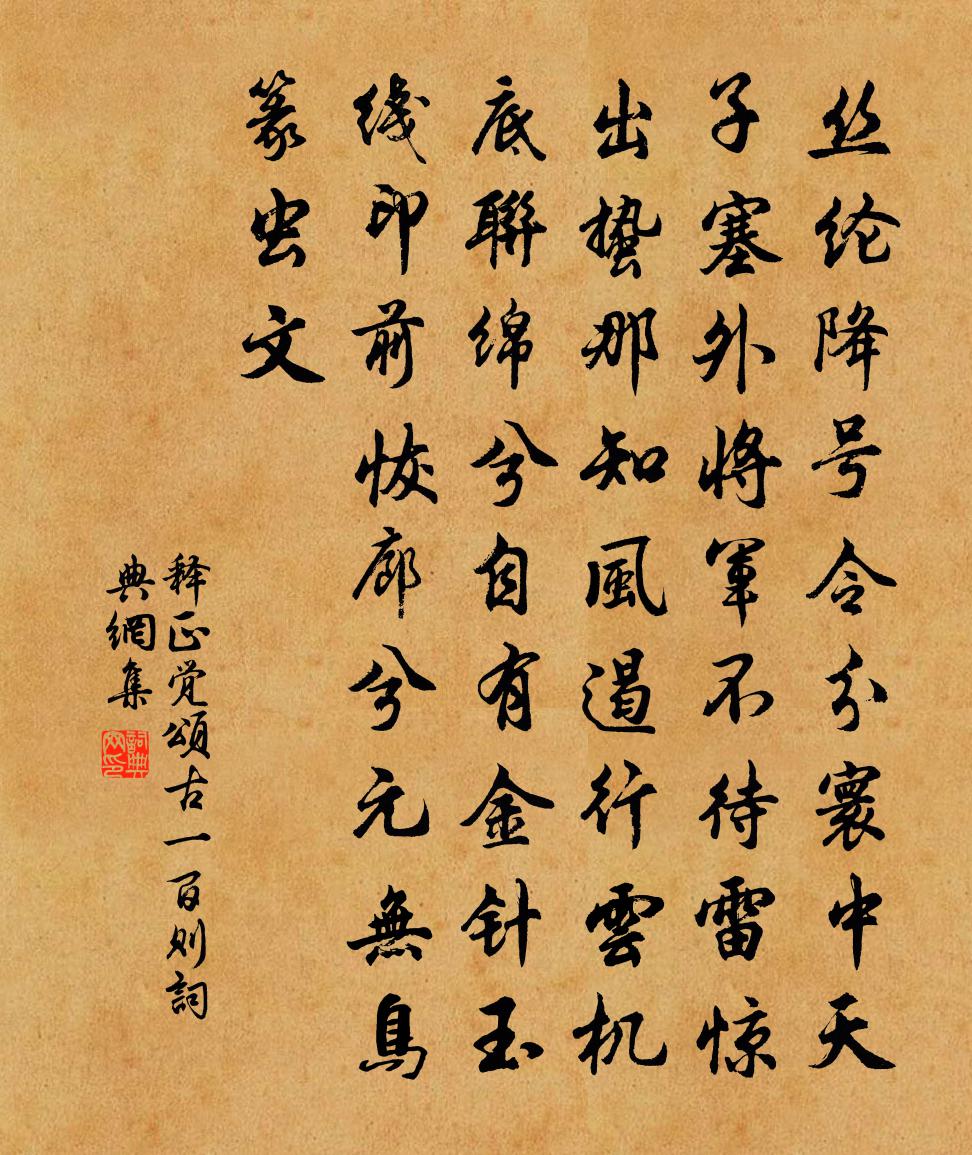 丝纶降号令分寰中天
子塞外将军不待雷惊
出蛰那知風遏行雲机
底聯绵兮自有金针玉
线印前恢廓兮元無鳥
篆虫文
释正觉頌古一百则詞
典網集
詞典网印